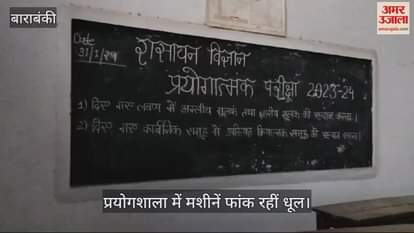 बाराबंकी
अमर उजाला
amarujala.com
Date
31/1/24
रासायन विज्ञान
प्रयोगात्मक परीक्षा 2023-24
1) दिए गए लवण में अम्लीय मूलक तथा क्षारीय मूलक की पहचान करना।
2) दिए गए कार्बनिक समूह से क्रियात्मक समूह की पहचान करना।
प्रयोगशाला में मशीनें फांक रहीं धूल।